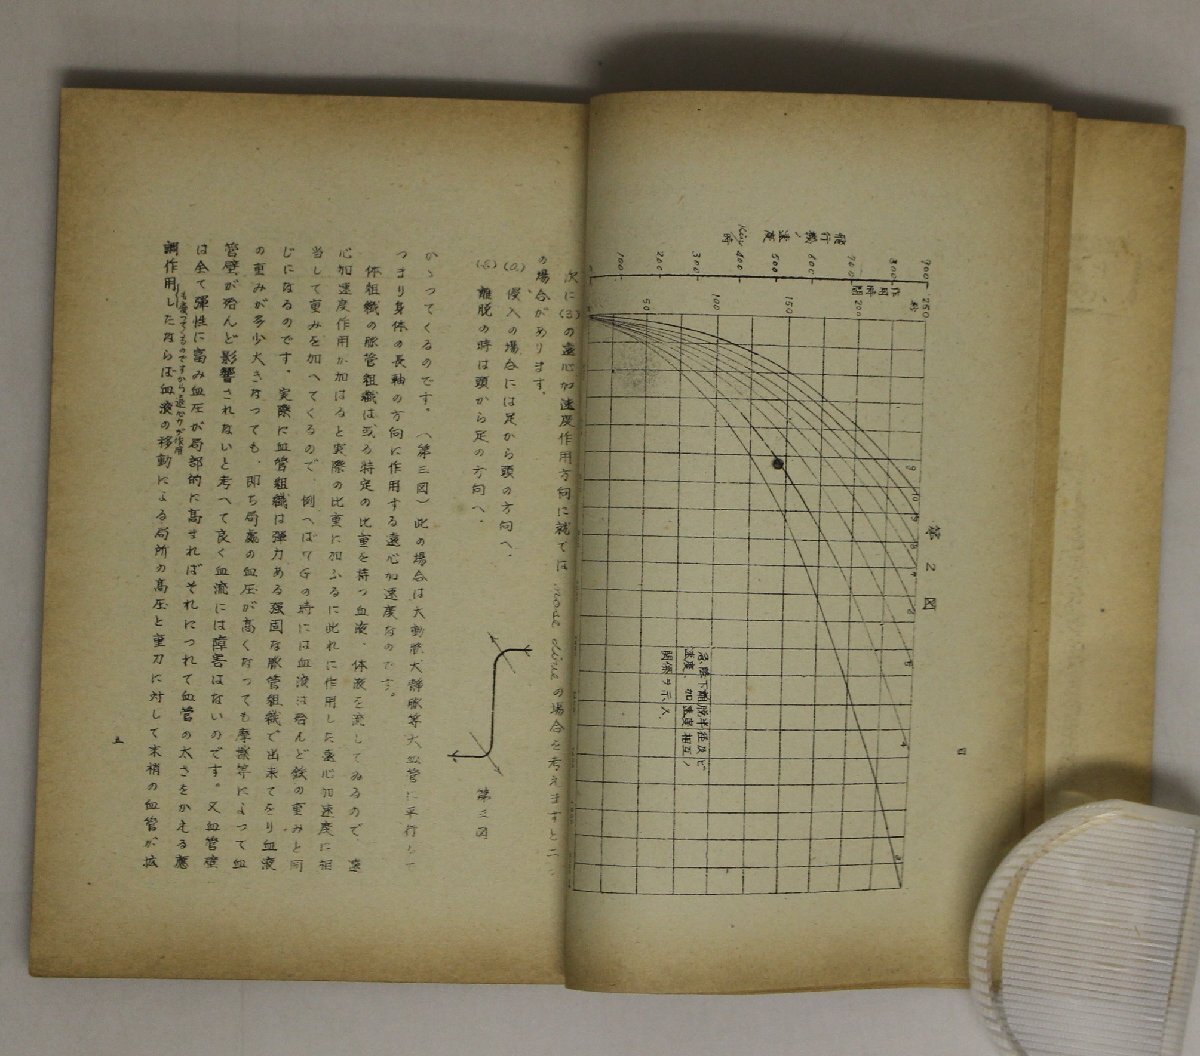 第2図
急降下離脱半径及ビ
速度、加速度相互ノ
関係ヲ示ス
飛行機ノ速度
Km/時
0 100 200 300 400 500 600 700 800 900
作用時間
50 100 150 200 250
秒
四
次に(3)の遠心加速度作用方向に就ては nose dive の場合を考えますと二つ
の場合があります。
(a) 侵入の場合には足から頭の方向へ、
(b) 離脱の時は頭から足の方向へ、
第三図
かゝつてくるのです。(第三図)此の場合は大動脈大静脈等大血管に平行して
つまり身体の長軸の方向に作用する遠心加速度なのです。
体組織の脈管組織は或る特定の比重を持つ血液、体液を流してゐるので、遠
心加速度作用が加はると実際の比重に加ふるに此れに作用した遠心加速度に相
当して重みを加へてくるので、例へば7Gの時には血液は殆んど鉄の重みと同
じになるのです。実際に血管組織は弾力ある強固な脈管組織で出来てをり血液
の重みが多少大きなつても、即ち局處の血圧が高くなつても摩擦等によつて血
管壁が殆んど影響されないと考へて良く血流には障害はないのです。又血管壁
は全て弾性に富み血圧が局部的に高まればそれにつれて血管の太さをかえる應
調作用
も変つてくるものですから遠心力が作用
したならば血液の移動による局所の高圧と重力に対して末梢の血管が拡
五